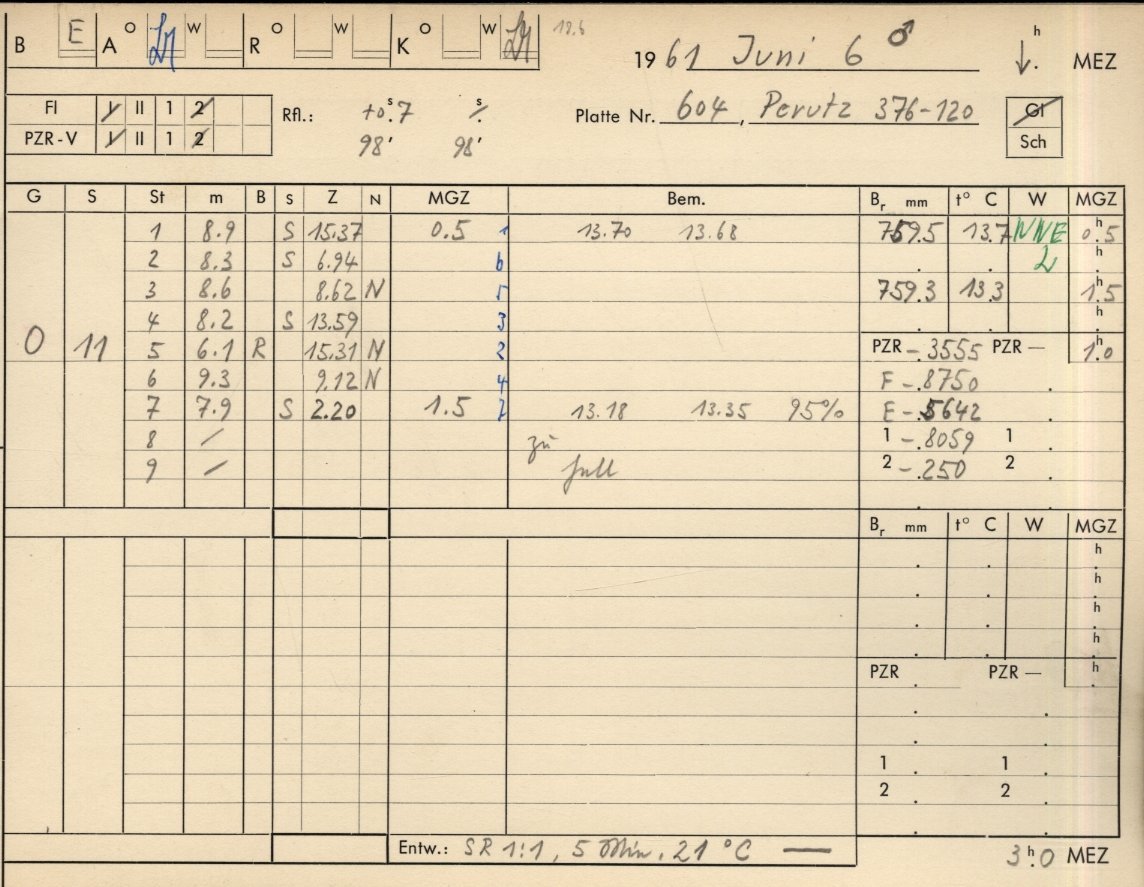 B E A O W R O W K O W 12.6
19 61 Juni 6 ♂ h MEZ
FI I II 1 2 Rfl.: +0ˢ.7 s Platte Nr. 604, Perutz 376-120 Gl
PZR-V I II 1 2 98' 98' Sch
G S St m B S Z N MGZ Bem. Bᵣ mm t° C W MGZ
1 8.9 S 15.37 0.5 1 13.70 13.68 759.5 13.7 NNE 0ʰ.5
2 8.3 S 6.94 6 2 h
3 8.6 8.62 N 5 759.3 13.3 1ʰ.5
4 8.2 S 13.59 3 h
0 11 5 6.1 R 15.31 N 2 PZR -.3555 PZR — 1ʰ.0
6 9.3 9.12 N 4 F -.8750
7 7.9 S 2.20 1.5 7 13.18 13.35 95% E -.5642
8 / zu 1 -.8059 1
9 / hell 2 -.250 2
Bᵣ mm t° C W MGZ
h
h
h
h
PZR PZR — h
1 1
2 2
Entw.: SR 1:1, 5 Min, 21 °C —
3ʰ.0 MEZ